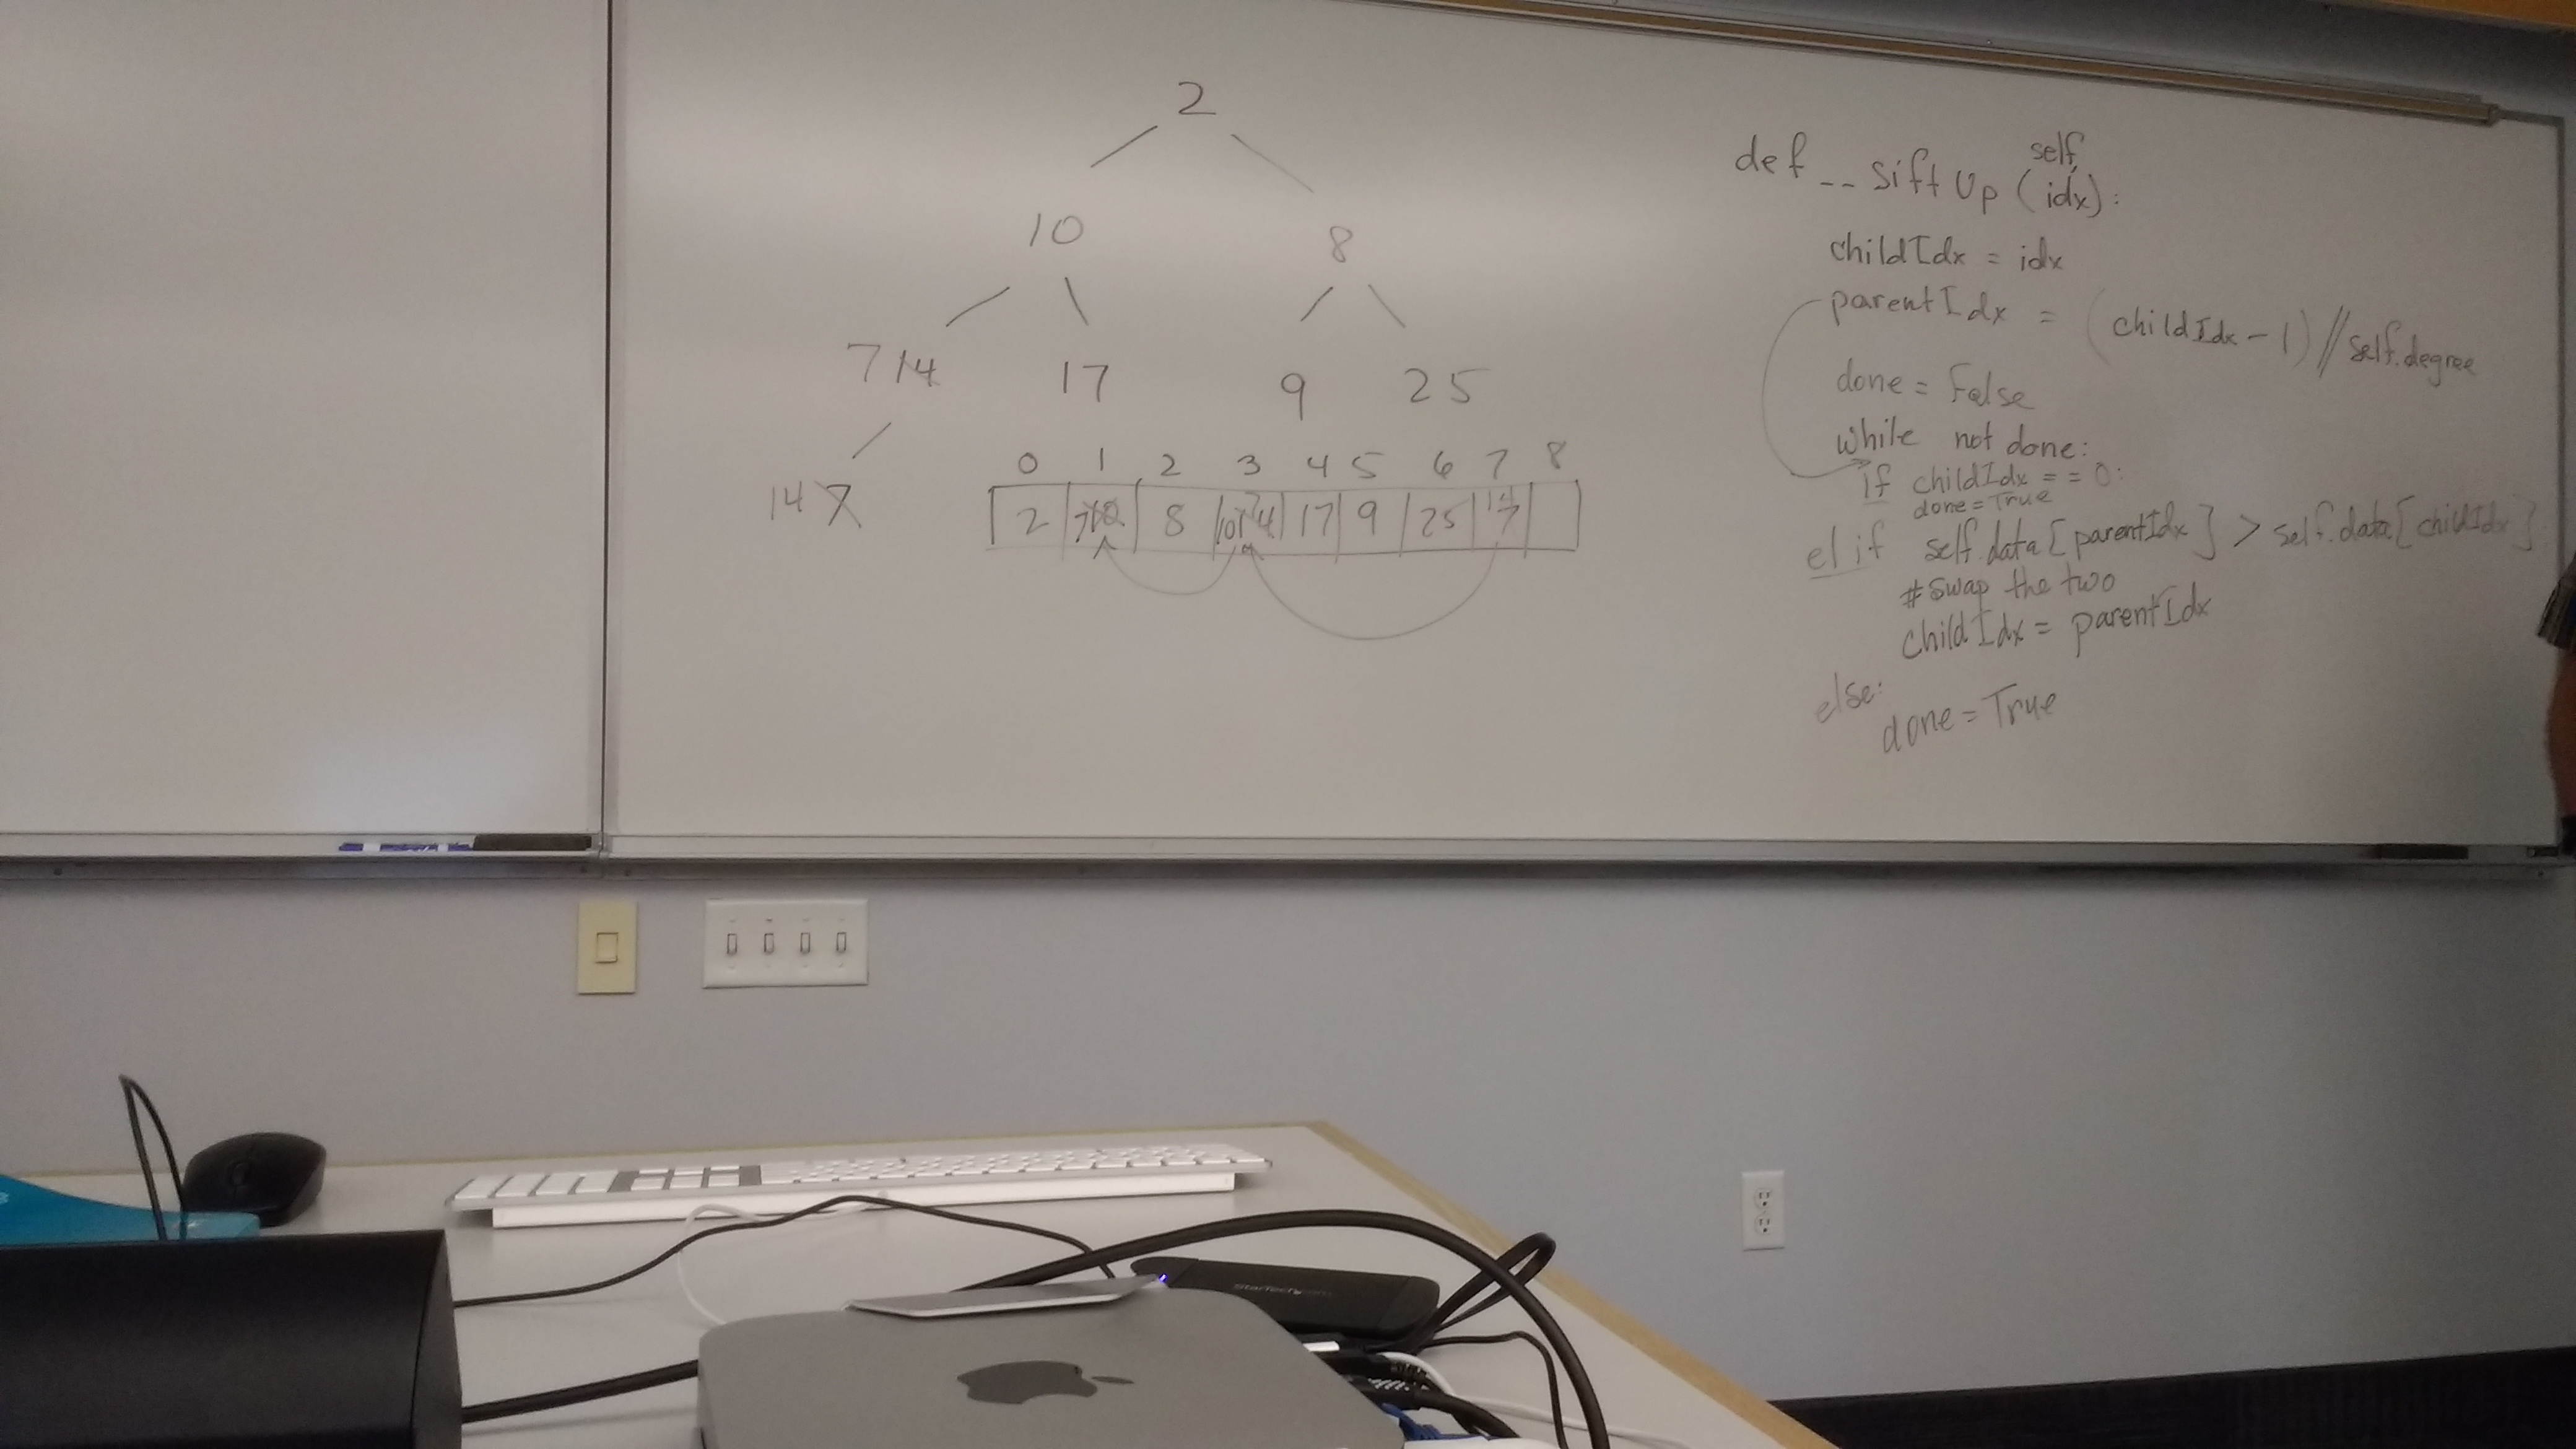 2
10 8
7 14 17 9 25
14 7
0 1 2 3 4 5 6 7 8
2 7 10 8 10 7 14 17 9 25 14 7
def __siftUp (self, idx):
childIdx = idx
parentIdx = (childIdx - 1) // self.degree
done = False
while not done:
if childIdx == 0:
done = True
elif self.data[parentIdx] > self.data[childIdx]
#swap the two
childIdx = parentIdx
else:
done = True
StarTech.com